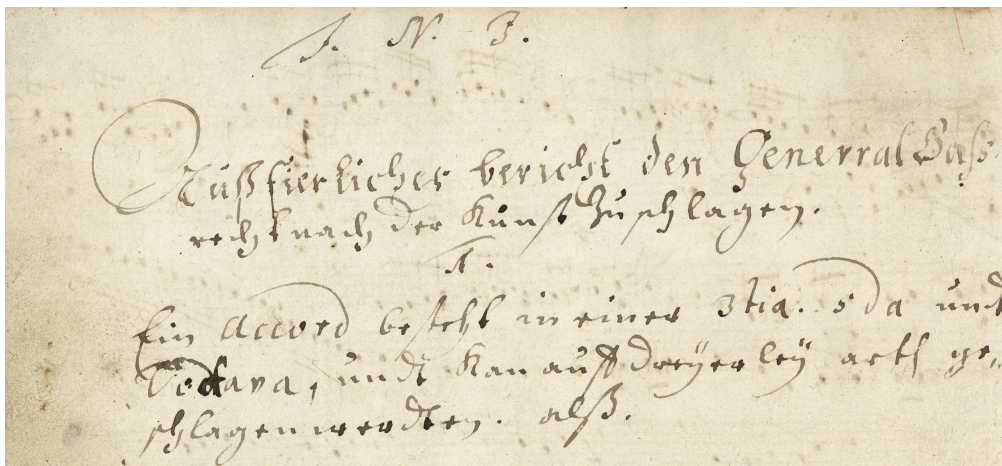 J. N. J.
Außfierliches bericht den Generral Bass
recht nach der Kunst zu schlagen.
1.
Ein Accord besteht in einer 3tia. 5da undt
Octava, undt kan auff dreÿerleÿ arth ge„
schlagen werdten. alß.